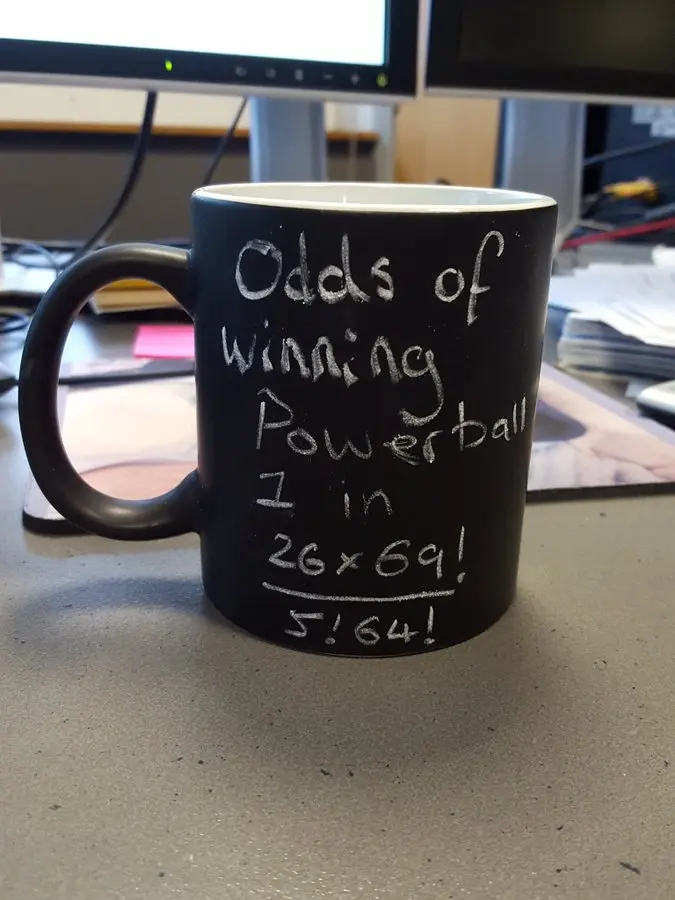 Odds of
winning
Powerball
1 in
26×69!
5!64!